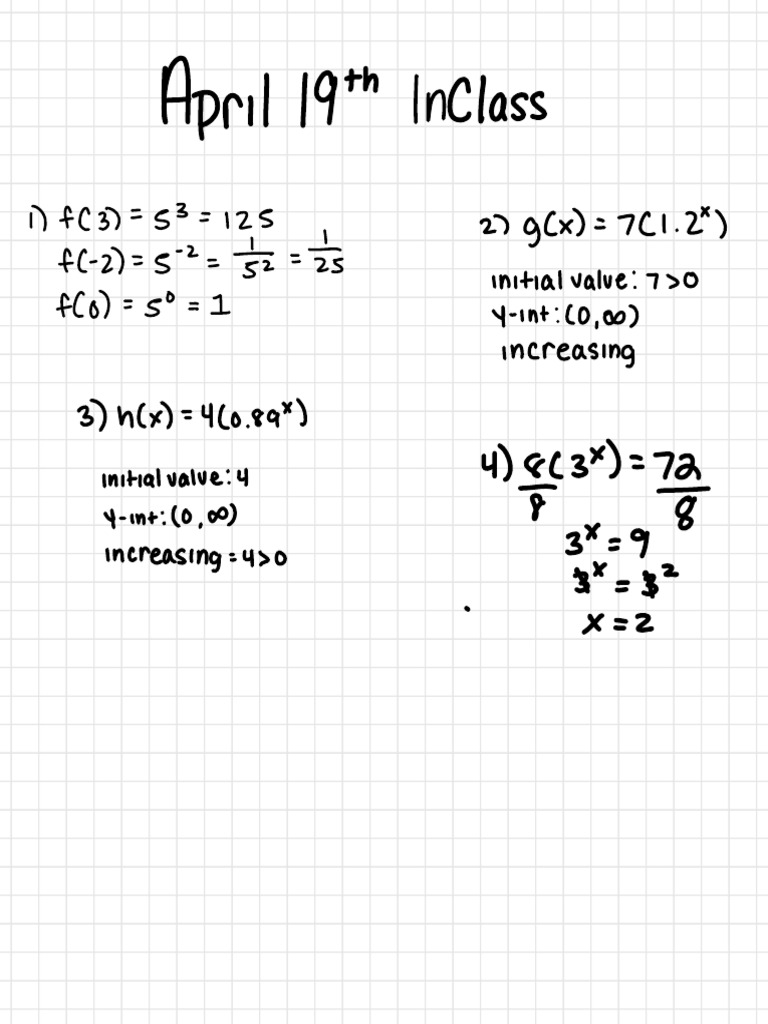 April 19th InClass
1) f(3) = 5³ = 125
f(-2) = 5⁻² = 1/5² = 1/25
f(0) = 5⁰ = 1
2) g(x) = 7(1.2ˣ)
initial value: 7>0
y-int: (0,∞)
increasing
3) h(x) = 4(0.89ˣ)
initial value: 4
y-int: (0,∞)
increasing = 4>0
4) 8(3ˣ)/8 = 72/8
3ˣ = 9
3ˣ = 3²
x = 2